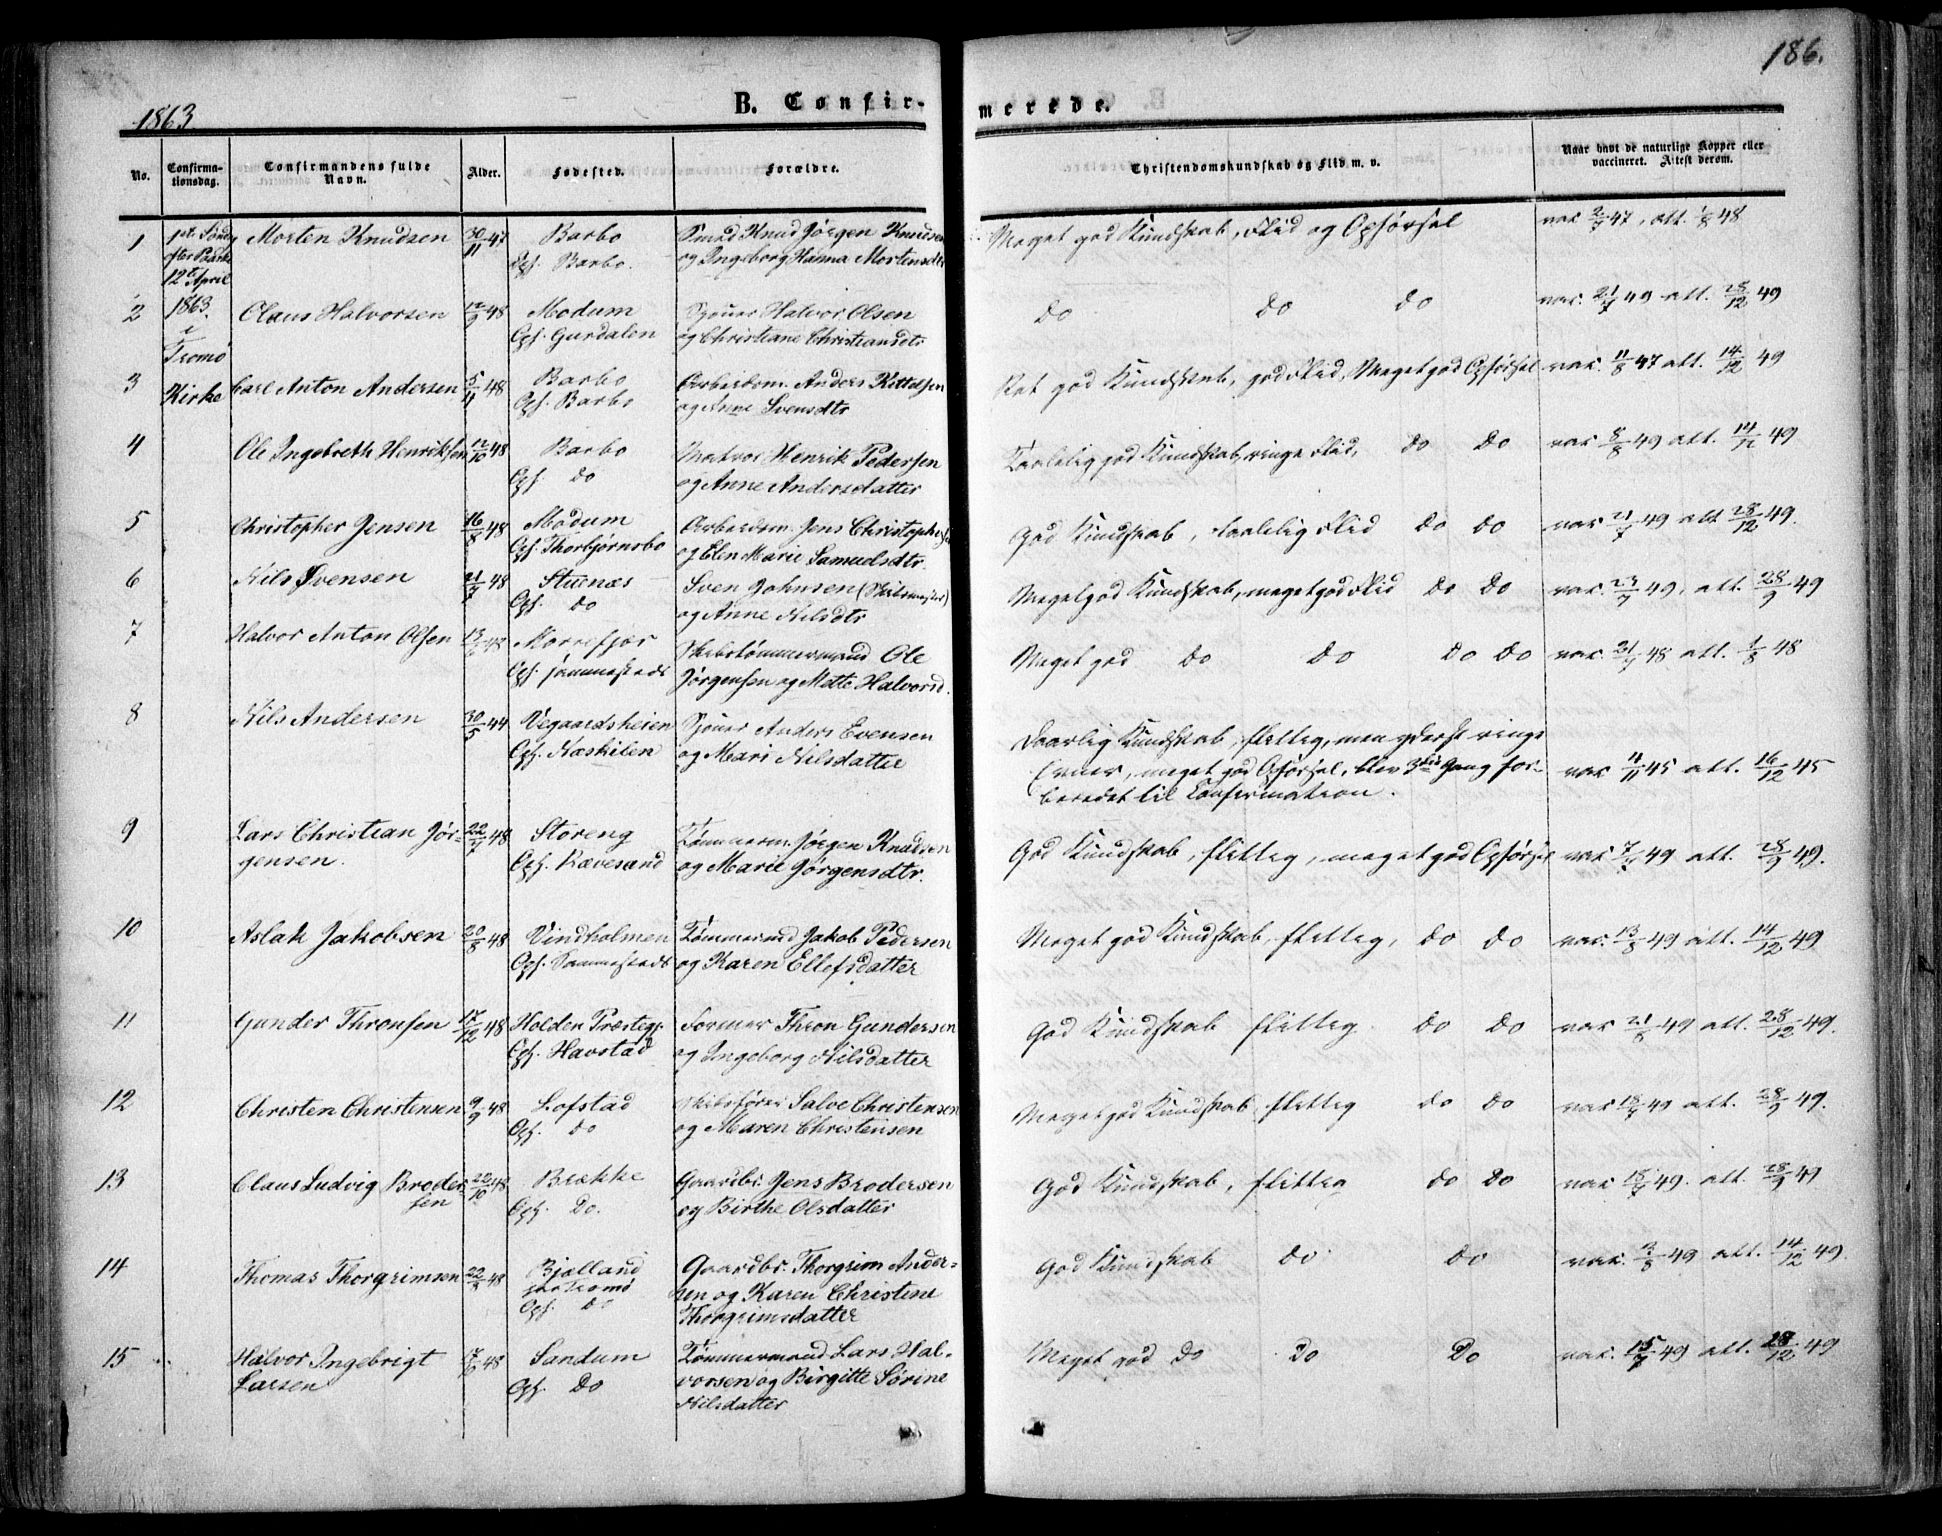 186.
1863
B. Confirmerede.
No.
Confirmationsdag.
Confirmandens fulde Navn.
Alder.
Fødested.
Forældre.
Christendomskundskab og Flid m. v.
Naar havt de naturlige Kopper eller vaccineret. Attest derom.
1 1ste Søndag Morten Knudsen 30/11 47 Barbo Smed Knud Jörgen Knudsen Meget god Kundskab, Flid og Opförsel vac 2/7 47, att. 1/8 48
efter Paaske Oph. Barbo. og Ingeborg Hanna Mortensdtr
12te April
2 1863 Claus Halvorsen 12/9 48 Modum Halvor Olsen Do Do Do vac. 21/7 49 att. 28/12 49
i Oph. Gurdalen og Christiane Christiansdtr
Tromö
3 Kirke Carl Anton Andersen 5/11 48 Barbo Arbeidsm. Anders Kittelsen Ret god Kundskab, god Flid, Meget god Opförsel vac. 11/8 47 att. 14/12 49
Oph. Barbo og Anne Svensdtr
4 Ole Ingebreth Henriksen 12/10 48 Barbo Matros Henrik Pedersen Taalelig god Kundskab, ringe Flid, Do Do vac 8/8 49 att. 14/12 49
Oph. Do og Anne Andersdatter
5 Christopher Jensen 16/8 48 Modum Arbeidsm. Jens Christophersen God Kundskab, taalelig Flid Do Do vac 21/7 49 att 28/12 49.
Oph. Thorbjörnsbo og Elen Marie Samuelsdtr.
6 Nils Svensen 48 Stuenæs Sven Johnsen Meget god Kundskab, meget god Flid Do Do vac. 23/7 49, att. 28/9 49
Oph. Do og Anne Nilsdtr
7 Halvor Anton Olsen 48 Morrefjær Skibstömmermand Ole Meget god Do Do Do Do vac. 21/7 48 att. 1/8 48
Oph. Sammesteds Jörgensen og Mette Halvorsd.
8 Nils Andersen 30/5 44 Vegaardsheien Anders Evensen Daarlig Kundskab, flittig, men yderst ringe
Oph. Næskilen og Mari Nilsdatter Evner, meget god Opförsel, blev 3die Gang for- vac 4/11 45 att. 16/12 45
beredet til Confirmation.
9 Lars Christian Jör- 22/7 48 Storeng Tömmerm. Jörgen Knudsen God Kundskab, flittig, meget god Opförsel vac 49 att. 28/9 49.
gensen. Oph. Rævesand og Marie Jörgensdtr.
10 Aslak Jakobsen 20/8 48 Vindholmen Tömmermd Jakob Pedersen Meget god Kundskab, flittig, Do Do vac. 13/8 49 att. 14/12 49
Oph. Sammesteds og Karen Ellefsdatter
11 Gunder Thronsen 17/12 48 Holden Præstegj. Former Thron Gundersen God Kundskab flittig Do Do vac 21/8 49 att. 28/12 49.
Oph. Havstad og Ingeborg Nilsdatter
12 Christen Christensen 9/9 48 Lofstad Skibsförer Salve Christensen Meget god Kundskab, flittig Do Do vac 18/7 49 att. 28/9 49.
Oph. Do og Maren Christensen
13 Claus Ludvig Broder- 22/10 48 Brække Gaardbr. Jens Brodersen God Kundskab, flittig Do Do vac 18/7 49. att. 28/9 49
sen Oph. Do. og Birthe Olsdatter
14 Thomas Thorgrimsen 48 Bjelland Gaardbr. Thorgrim Ander- God Kundskab Do Do vac. 2/8 49 att. 14/12 49.
paa Tromö sen og Karen Christine
Oph. Do Thorgrimsdatter
15 Halvor Ingebrigt 48 Sandum Tömmermand Lars Hal- Meget god Do Do Do vac. 15/7 49 att. 28/12 49
Larsen Oph. Do vorsen og Birgitte Sörine
Nilsdatter